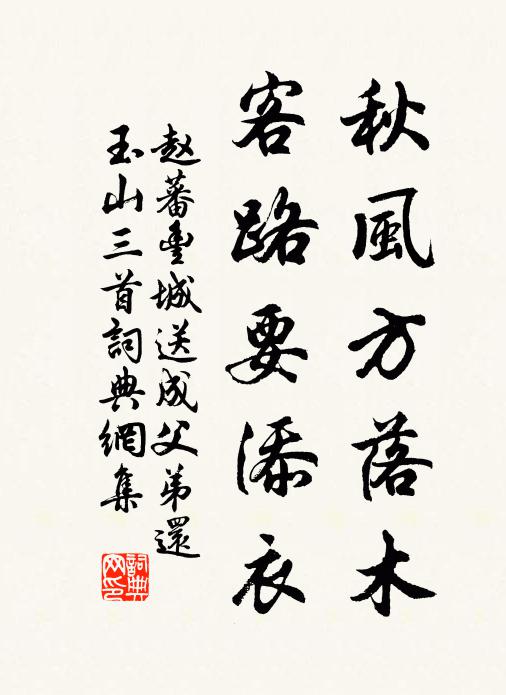 秋風方落木
客路要添衣
赵蕃豐城送成父弟還
玉山三首詞典網集
詞典網印